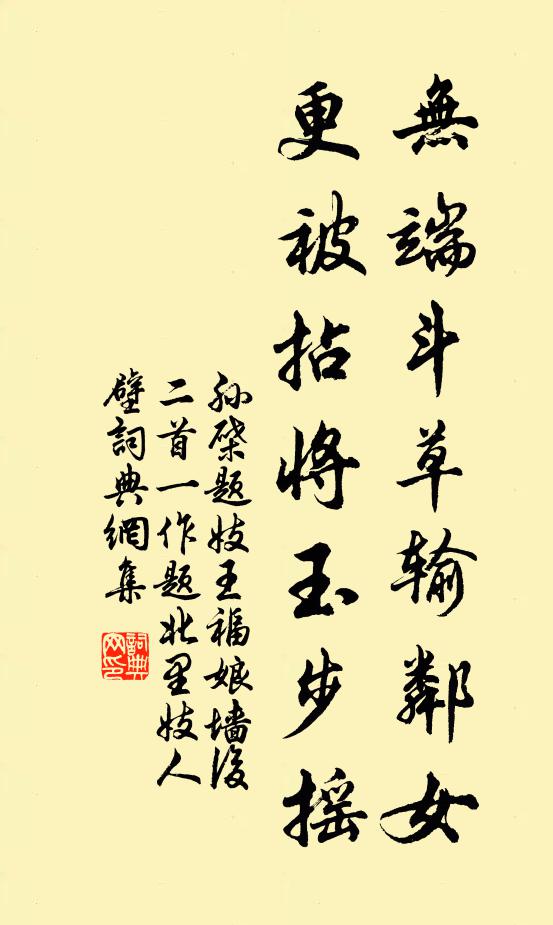 無端斗草输鄰女
更被拈將玉步摇
孙棨题妓王福娘墙後
二首一作题北里妓人
壁詞典網集
詞典网印